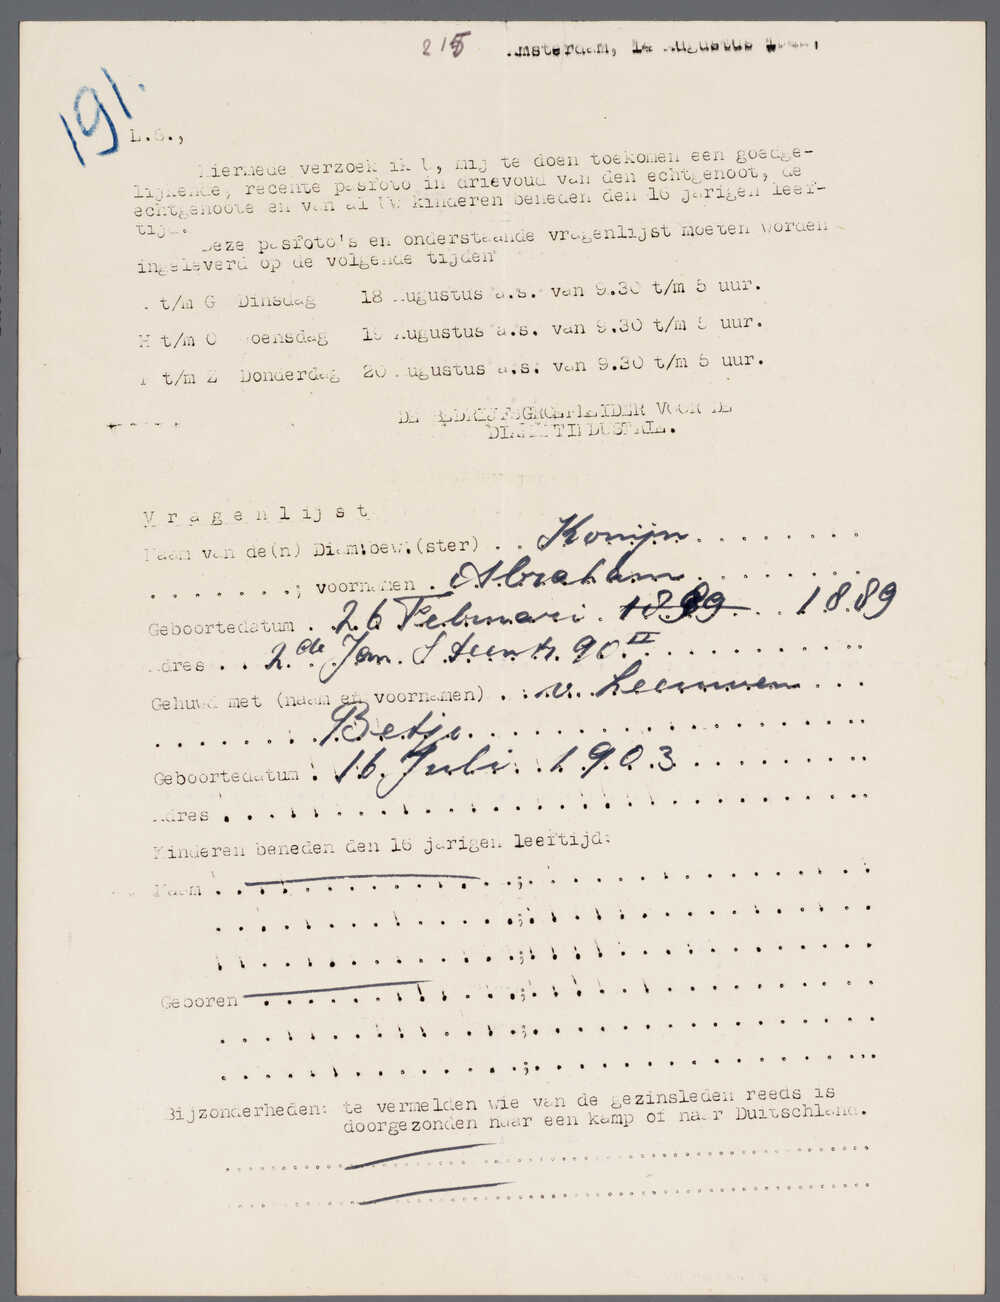 215 Amsterdam, 14 Augustus
191.
L.S.,
Hiermede verzoek ik U, mij te doen toekomen een goedge-
lijkende, recente pasfoto in drievoud van den echtgenoot, de
echtgenoote en van al Uw kinderen beneden den 16 jarigen leef-
tijd.
Deze pasfoto's en onderstaande vragenlijst moeten worden
ingeleverd op de volgende tijden
t/m G Dinsdag 18 Augustus a.s. van 9.30 t/m 5 uur.
H t/m O Woensdag 19 Augustus a.s. van 9.30 t/m 5 uur.
P t/m Z Donderdag 20 Augustus a.s. van 9.30 t/m 5 uur.
DE BEDRIJFSGROEPLEIDER VOOR DE
DIAMANTINDUSTRIE.
Vragenlijst
Naam van de(n) Diam.bew.(ster) . . Konijn . . . . . . . .
. . . . . . . .; voornamen . Abraham . . . . . . . .
Geboortedatum . 26 Februari . 1899 . . 1889
Adres . . 2de Jan Steenstr. 90 II . . . . . . . . . .
Gehuwd met (naam en voornamen) . . v. Leeuwen . . .
. . . . . . . . Betje . . . . . . . . . . . . . . . . . .
Geboortedatum . 16 Juli . 1903 . . . . . . . . . .
Adres . . . . . . . . . . . . . . . . . . . . . . . . . . . . . . .
Kinderen beneden den 16 jarigen leeftijd:
Naam . . . . . . . . . . . . . . . .; . . . . . . . . . . . . . . . . . .
. . . . . . . . . . . . . . . . . . . .; . . . . . . . . . . . . . . . . . .
. . . . . . . . . . . . . . . . . . . .; . . . . . . . . . . . . . . . . . .
Geboren . . . . . . . . . . . . . . . .; . . . . . . . . . . . . . . . . . .
. . . . . . . . . . . . . . . . . . . .; . . . . . . . . . . . . . . . . . .
. . . . . . . . . . . . . . . . . . . .; . . . . . . . . . . . . . . . . . .
Bijzonderheden: te vermelden wie van de gezinsleden reeds is
doorgezonden naar een kamp of naar Duitschland.